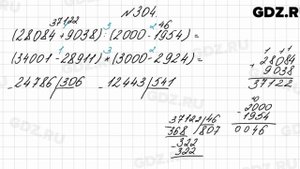 GDZ.RU
№304.
37122 46
1 3 2
(28084+9038):(2000-1954)=
1 3 2
(34001-28911)*(3000-2924)=
-24786|306 -12443|541
+28084
9038
37122
-37122|46
368 807
-322
322
-2000
1954
0046